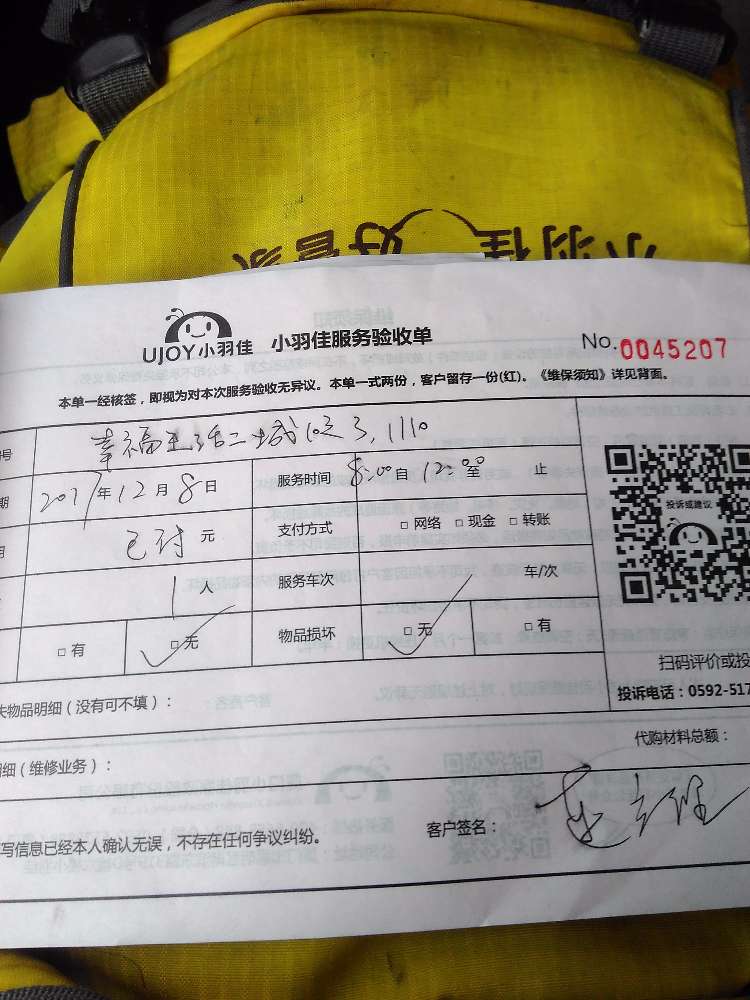 小羽佳 好管家
UJOY小羽佳 小羽佳服务验收单 No. 0045207
本单一经核签，即视为对本次服务验收无异议。本单一式两份，客户留存一份(红)。《维保须知》详见背面。
号 幸福生活二城 3, 1110
期 2017年12月8日 服务时间 8:00自 12:00至 止
用 已付 元 支付方式 □ 网络 □ 现金 □ 转账
1 人 服务车次 车/次
□ 有 □ 无 物品损坏 □ 无 □ 有
投诉或建议
扫码评价或投
投诉电话：0592-517
失物品明细（没有可不填）：
代购材料总额：
明细（维修业务）：
写信息已经本人确认无误，不存在任何争议纠纷。 客户签名：